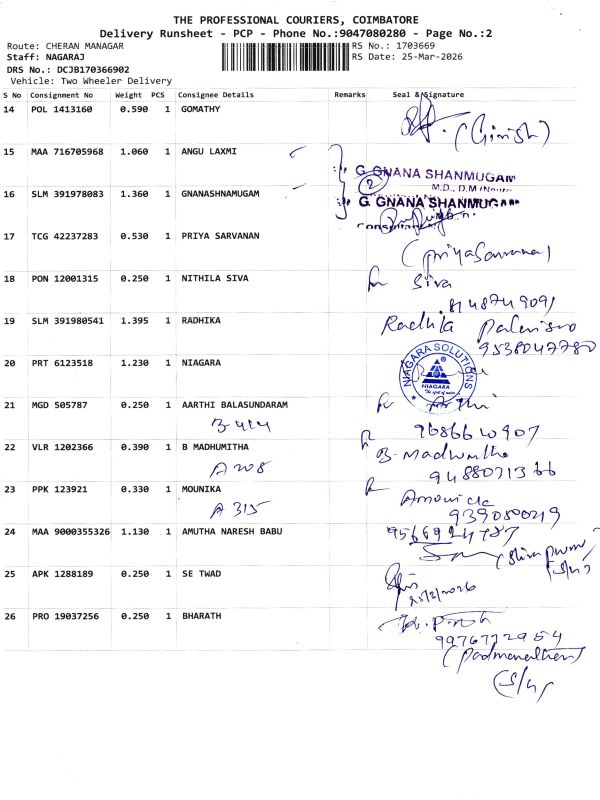 THE PROFESSIONAL COURIERS, COIMBATORE
Delivery Runsheet - PCP - Phone No.:9047080280 - Page No.:2
Route: CHERAN MANAGAR
RS No.: 1703669
Staff: NAGARAJ
RS Date: 25-Mar-2026
DRS No.: DCJB170366902
Vehicle: Two Wheeler Delivery
S No Consignment No Weight PCS Consignee Details Remarks Seal & Signature
14 POL 1413160 0.590 1 GOMATHY
(Girish)
15 MAA 716705968 1.060 1 ANGU LAXMI
G GNANA SHANMUGAM
2
M.D., D.M
16 SLM 391978083 1.360 1 GNANASHNAMUGAM
G GNANA SHANMUGAM
17 TCG 42237283 0.530 1 PRIYA SARVANAN
(priyaSarvanan)
18 PON 12001315 0.250 1 NITHILA SIVA
Siva
8148749091
19 SLM 391980541 1.395 1 RADHIKA
Radhika
9538047780
20 PRT 6123518 1.230 1 NIAGARA
NIAGARA SOLUTIONS
NIAGARA
21 MGD 505787 0.250 1 AARTHI BALASUNDARAM
B-414
9686640907
22 VLR 1202366 0.390 1 B MADHUMITHA
B-Madhumitha
A 208
9488071366
23 PPK 123921 0.330 1 MOUNIKA
A 315
Mounica
9390800219
24 MAA 9000355326 1.130 1 AMUTHA NARESH BABU
9566924787
(S/w)
25 APK 1288189 0.250 1 SE TWAD
25/2/2026
26 PRO 19037256 0.250 1 BHARATH
9976772954
(Padmanathan)
(S/w)